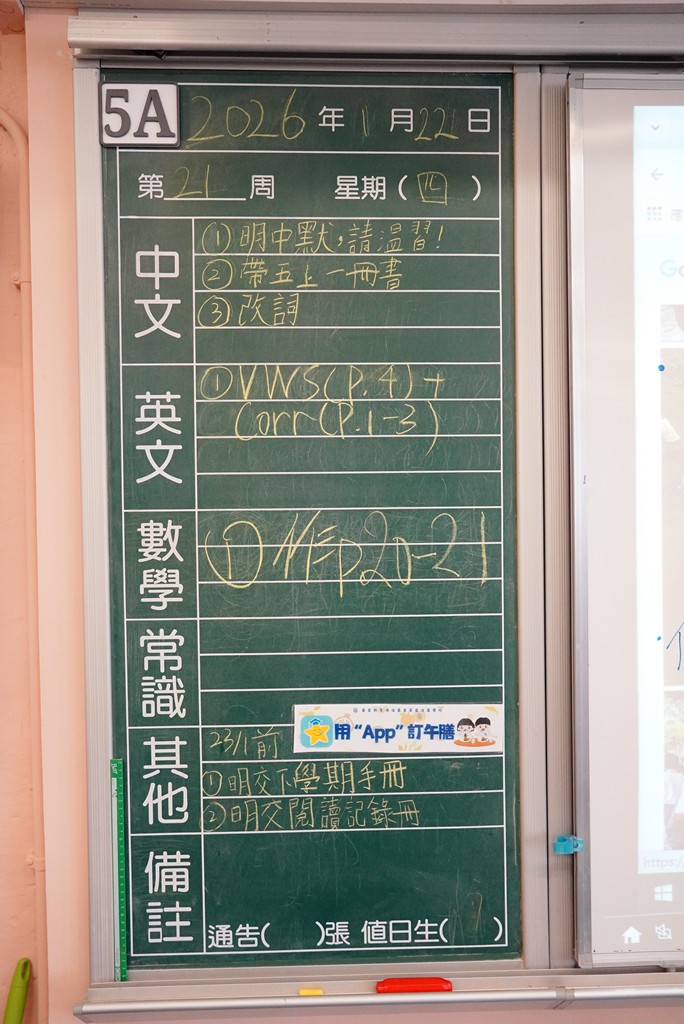 5A 2026年1月22日
第21周 星期(四)
中文
①明中默，請溫習!
②帶五上一冊書
③改詞
英文
①VWS(P.4)+
Corr(P.1-3)
數學
①ME p20-21
常識
其他
23/1前
用“App”訂午膳
①明交下學期手冊
②明交閱讀記錄冊
備註
通告( )張 值日生( )
https://